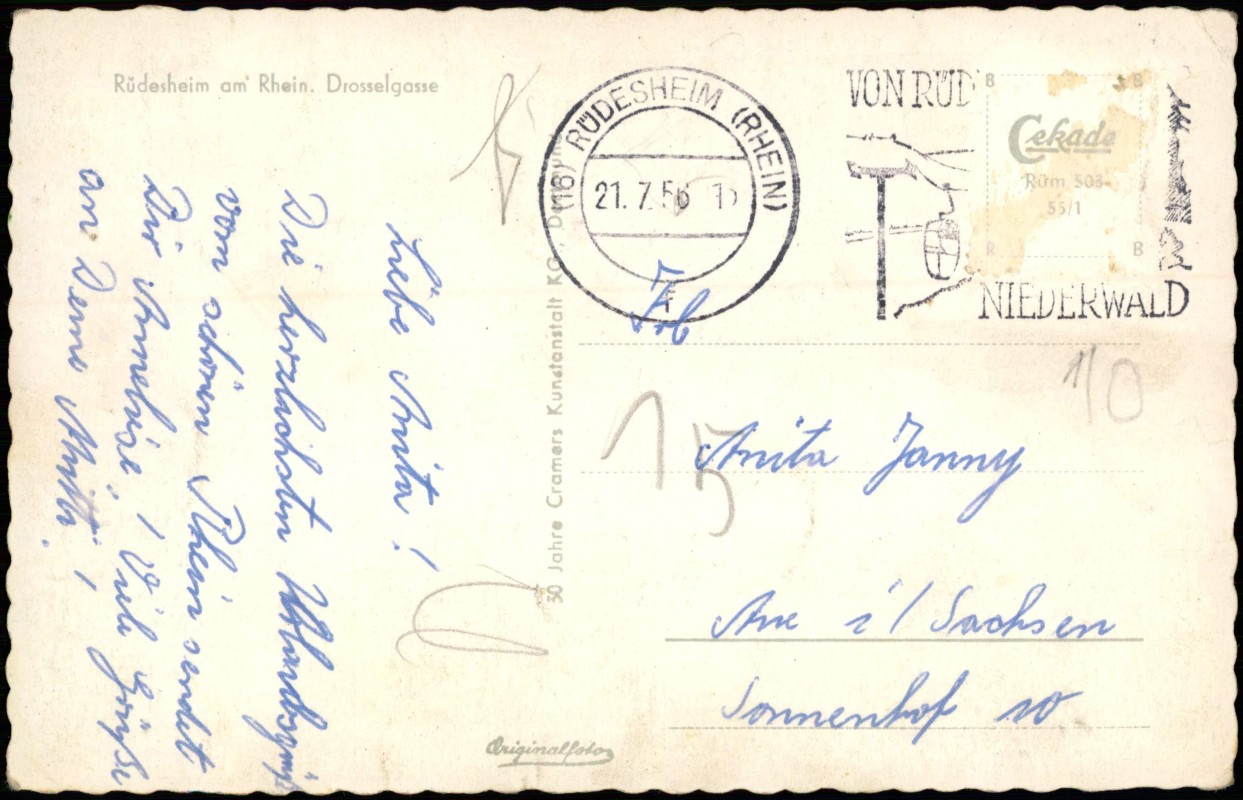 Rüdesheim am Rhein. Drosselgasse
Liebe Anita!
Die herzlichsten Urlaubsgrüße
vom schönen Rhein sendet
Dir Annelise, Viele Grüße
an Deine Mutti,
30 Jahre Cramers Kunstanstalt KG, Dortmund
Originalfoto
(16) RÜDESHEIM (RHEIN)
21. 7. 56
VON RÜD
NIEDERWALD
Cekade
Rüm 503-
55/1
B B
R B
Frl
1/0
15
Anita Janny
Aue i/Sachsen
Sonnenhof 10